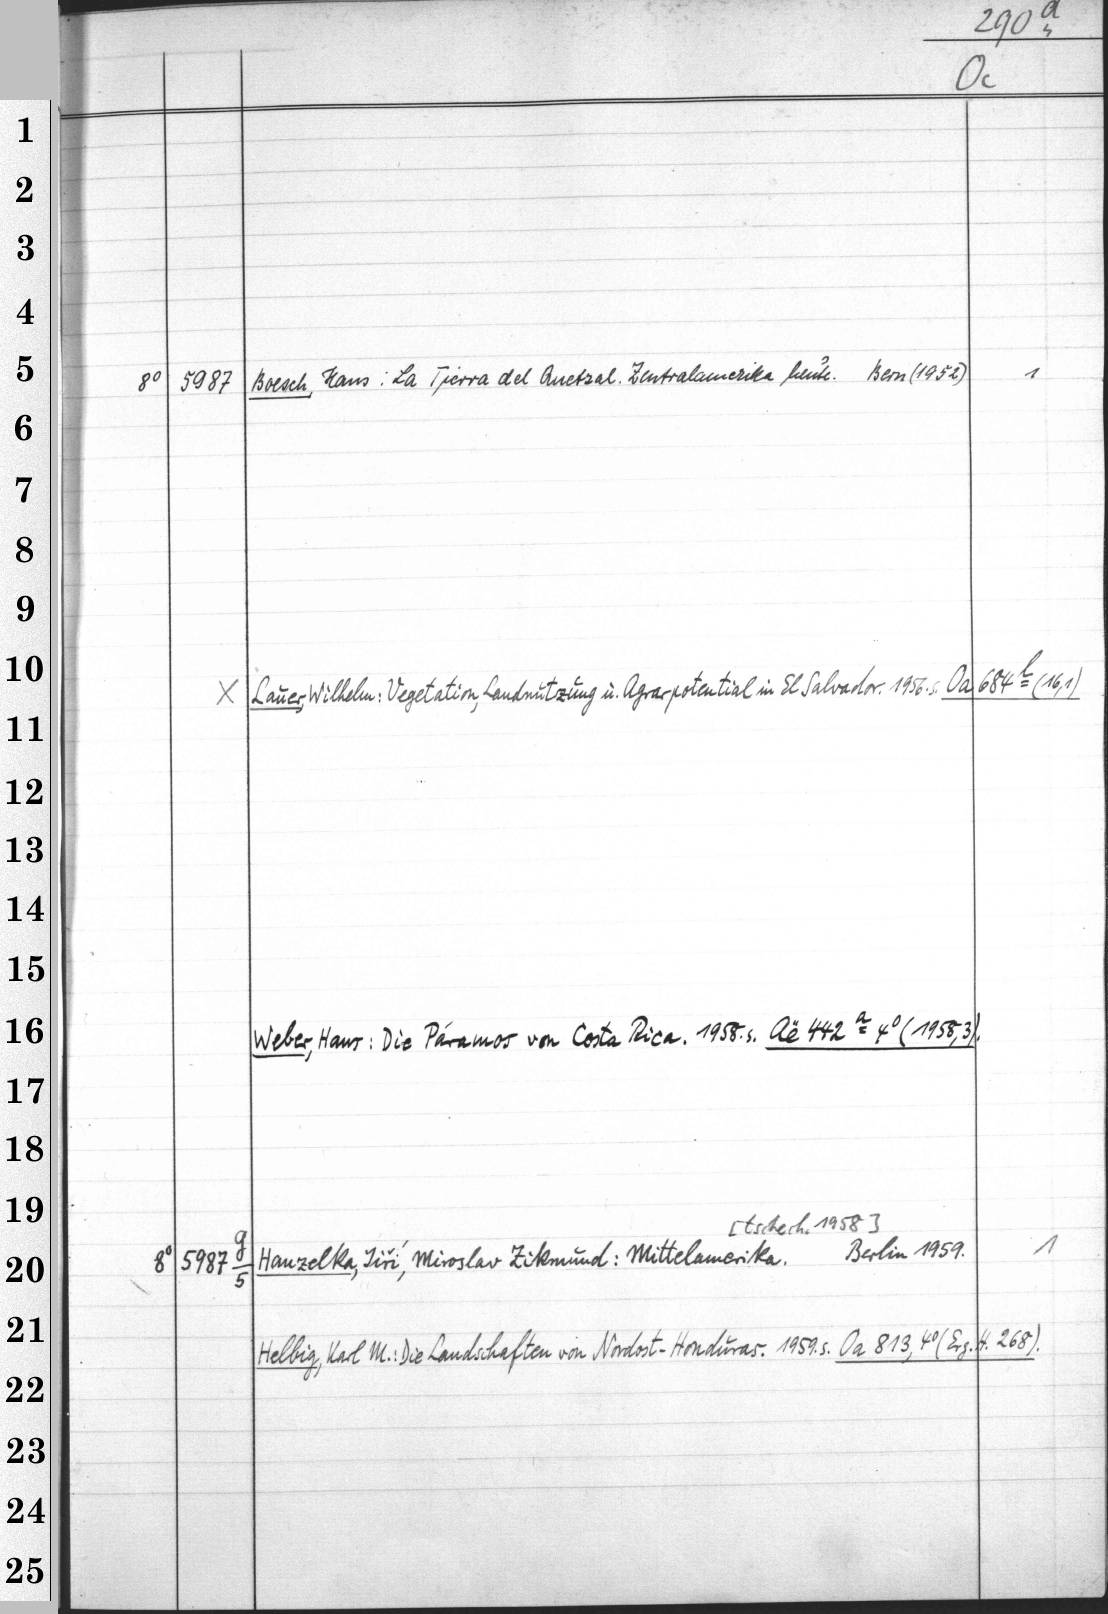 290 d
Oc
1
2
3
4
5
8° 5987 Boesch, Hans: La Tierra del Quetzal. Zentralamerika heute. Bern (1952) 1
6
7
8
9
10
X Lauer, Wilhelm: Vegetation, Landnutzung u. Agrarpotential in El Salvador. 1956. s. Oa 684 h (16,1)
11
12
13
14
15
16
Weber, Hans: Die Páramos von Costa Rica. 1958. s. Aë 442 a 4° (1958,3).
17
18
19
[tschech. 1958]
20
8° 5987 g/5 Hanzelka, Jiří, Miroslav Zikmund: Mittelamerika. Berlin 1959. 1
21
Helbig, Karl M.: Die Landschaften von Nordost-Honduras. 1959. s. Oa 813, 4° (Erg. H. 268).
22
23
24
25